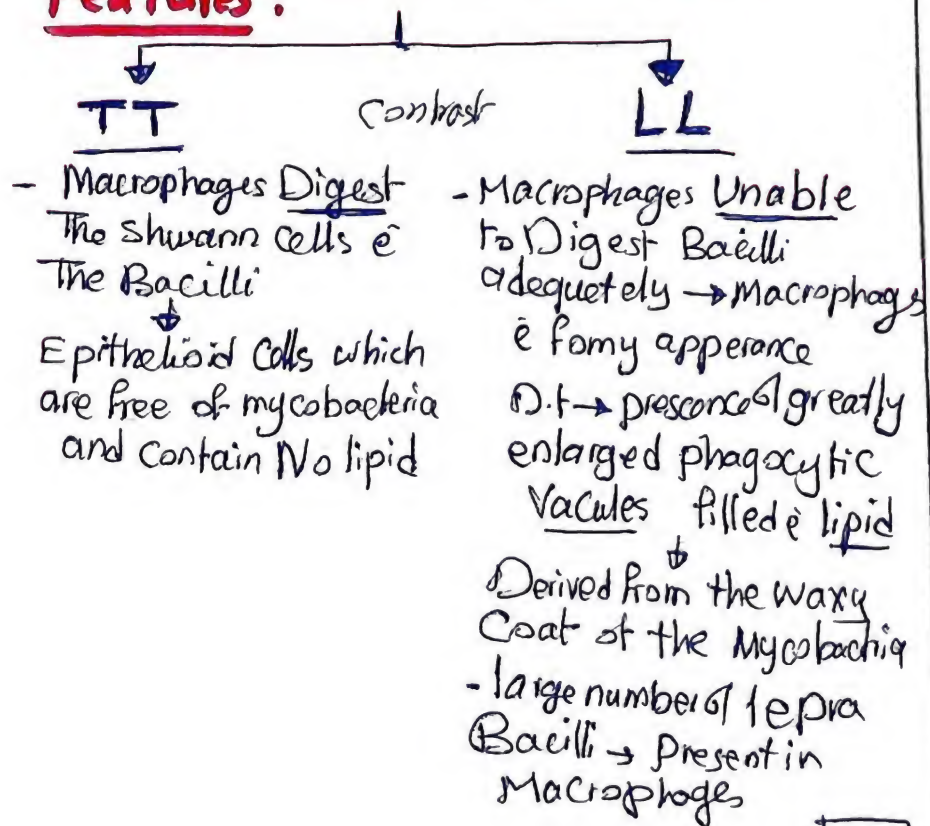 Features:
TT
Contrast
LL
- Macrophages Digest
The Shwann Cells ē
The Bacilli
Epithelioid Cells which
are free of mycobacteria
and contain No lipid
- Macrophages Unable
to Digest Bacilli
adequetely → Macrophags
ē fomy apperance
D.t → presconce of greatly
enlarged phagocytic
Vacules filled ē lipid
Derived from the waxy
Coat of the Mycobachia
- large number of lepra
Bacilli → Present in
Macrophages